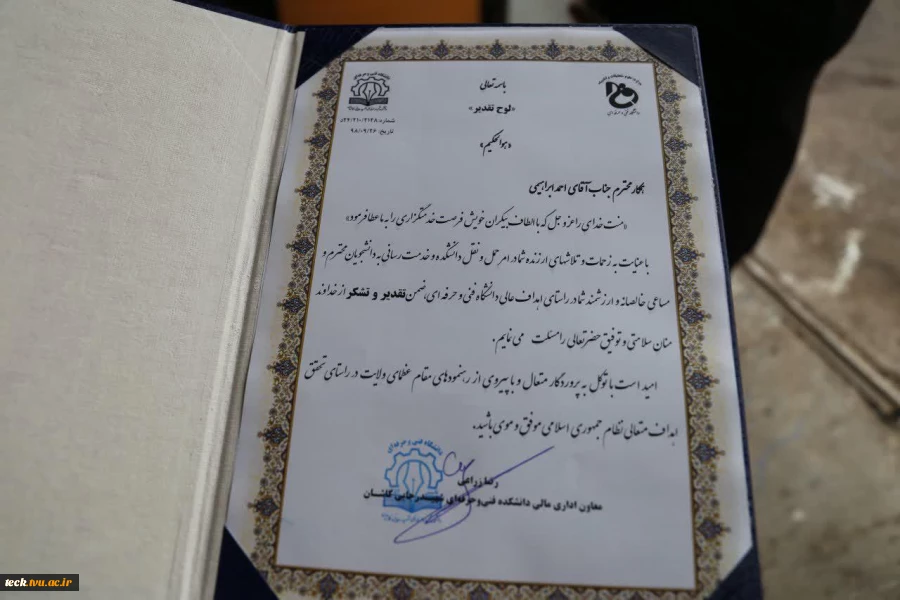 باسمه تعالی
«لوح تقدیر»
شماره: ۵۳۲/۲۱۰/۲۱۲۸
تاریخ: ۹۸/۰۹/۲۶
«هوالحکیم»
همکار محترم جناب آقای احمد ابراهیمی
«منت خدای را عزوجل که با الطاف بیکران خویش فرصت خدمتگزاری را به ما عطا فرمود»
با عنایت به زحمات و تلاشهای ارزنده شما در امر حمل و نقل دانشکده و خدمت رسانی به دانشجویان محترم و
مساعی خالصانه و ارزشمند شما در راستای اهداف عالی دانشگاه فنی و حرفه ای، ضمن تقدیر و تشکر از خداوند
منان سلامتی و توفیق حضرتعالی را مسئلت می نمایم.
امید است با توکل به پروردگار متعال و با پیروی از رهنمودهای مقام عظمای ولایت در راستای تحقق
اهداف متعالی نظام جمهوری اسلامی موفق و موید باشید.
دانشگاه فنی و حرفه‌ای
رضا زراعتی
معاون اداری مالی دانشکده فنی‌و‌حرفه‌ای شهید رجایی کاشان
teck.tvu.ac.ir